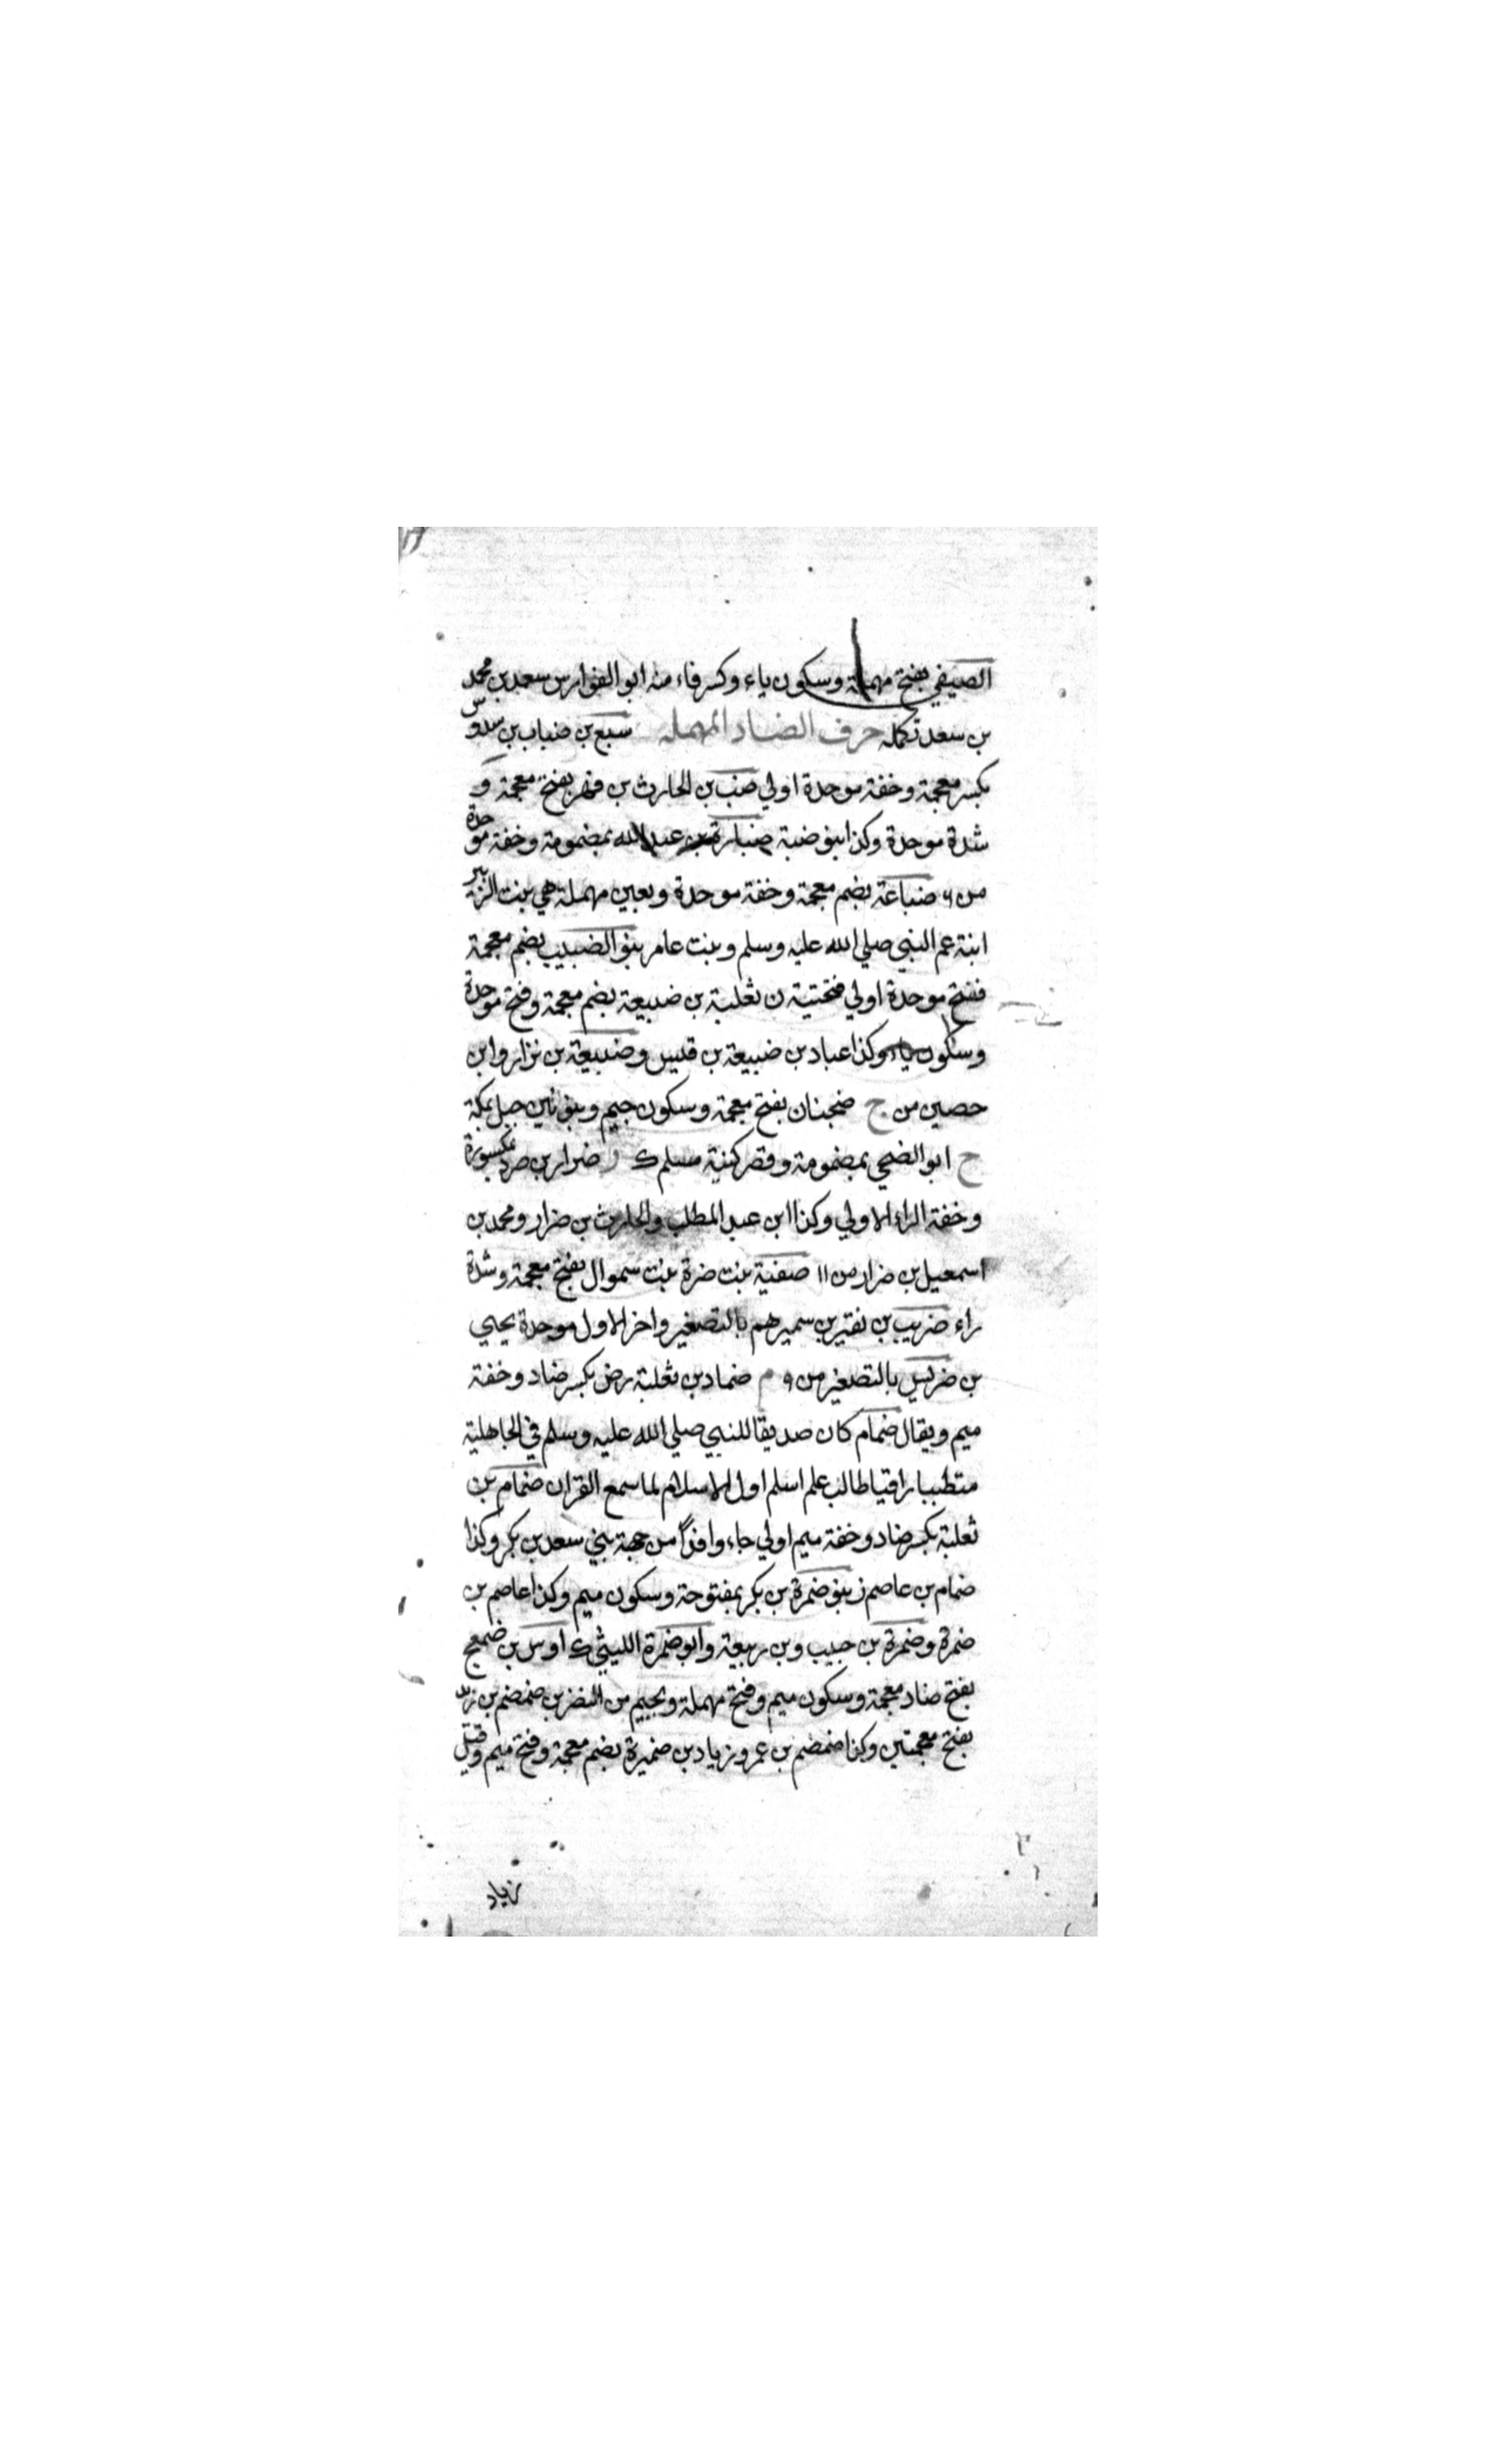 الصيفي بفتح مهملة وسكون ياء وكسر فاء منه ابو الفوارس سعد بن محمد
بن سعد تكمله حرف الضاد المهمله سبع بن ضباب بن سدوس
بكسر معجمة وخفة موحدة اولي ضب بن الحارث بن فهر بفتح معجمة و
شدة موحدة وكذا بنو ضبة ضبارة بن عبد الله بمضمومة وخفة موحدة
من ٦ ضباعة بضم معجمة وخفة موحدة وبعين مهملة هي بنت الزبير
ابنة عم النبي صلي الله عليه وسلم وبنت عامر بنو الضبيب بضم معجمة
ففتح موحدة اولي فتحتية ن ثعلبة بن ضبيعة بضم معجمة وفتح موحدة
وسكون ياء وكذا عباد بن ضبيعة بن قيس وضبيعة بن نزار وابن
حصين من ج ضجنان بفتح معجمة وسكون جيم وبنونين جبل بمكة
ح ابو الضحي بمضمومة وقصر كنية مسلم ك ر ضرار بن صرد بمكسورة
وخفة الراء الاولي وكذا ابن عبد المطلب والحارث بن ضرار ومحمد بن
اسمعيل بن ضرار من ١١ صفية بنت ضرة بنت سموال بفتح معجمة وشدة
راء ضريب بن نقير بن سمير هم بالتصغير واخر الاول موحدة يحيي
بن ضريس بالتصغير من ٩ م ضماد بن ثعلبة رض بكسر ضاد وخفة
ميم ويقال ضمام كان صديقا للنبي صلي الله عليه وسلم في الجاهلية
متطببا راقيا طالب علم اسلم اول الاسلام لما سمع القران ضمام بن
ثعلبة بكسر ضاد وخفة ميم اولي جاء وافدا من جهة بني سعد بن بكر وكذا
ضمام بن عاصم ز بنو ضمرة بن بكر بمفتوحة وسكون ميم وكذا عاصم بن
ضمرة وضمرة بن حبيب وبن ربيعة وابو ضمرة الليثي ك اوس بن ضمعج
بفتح ضاد معجمة وسكون ميم وفتح مهملة وبجيم من النضر بن ضمضم بن زيد
بفتح معجمتين وكذا ضمضم بن عمرو زياد بن ضميرة بضم معجمة وفتح ميم وقيل
زياد